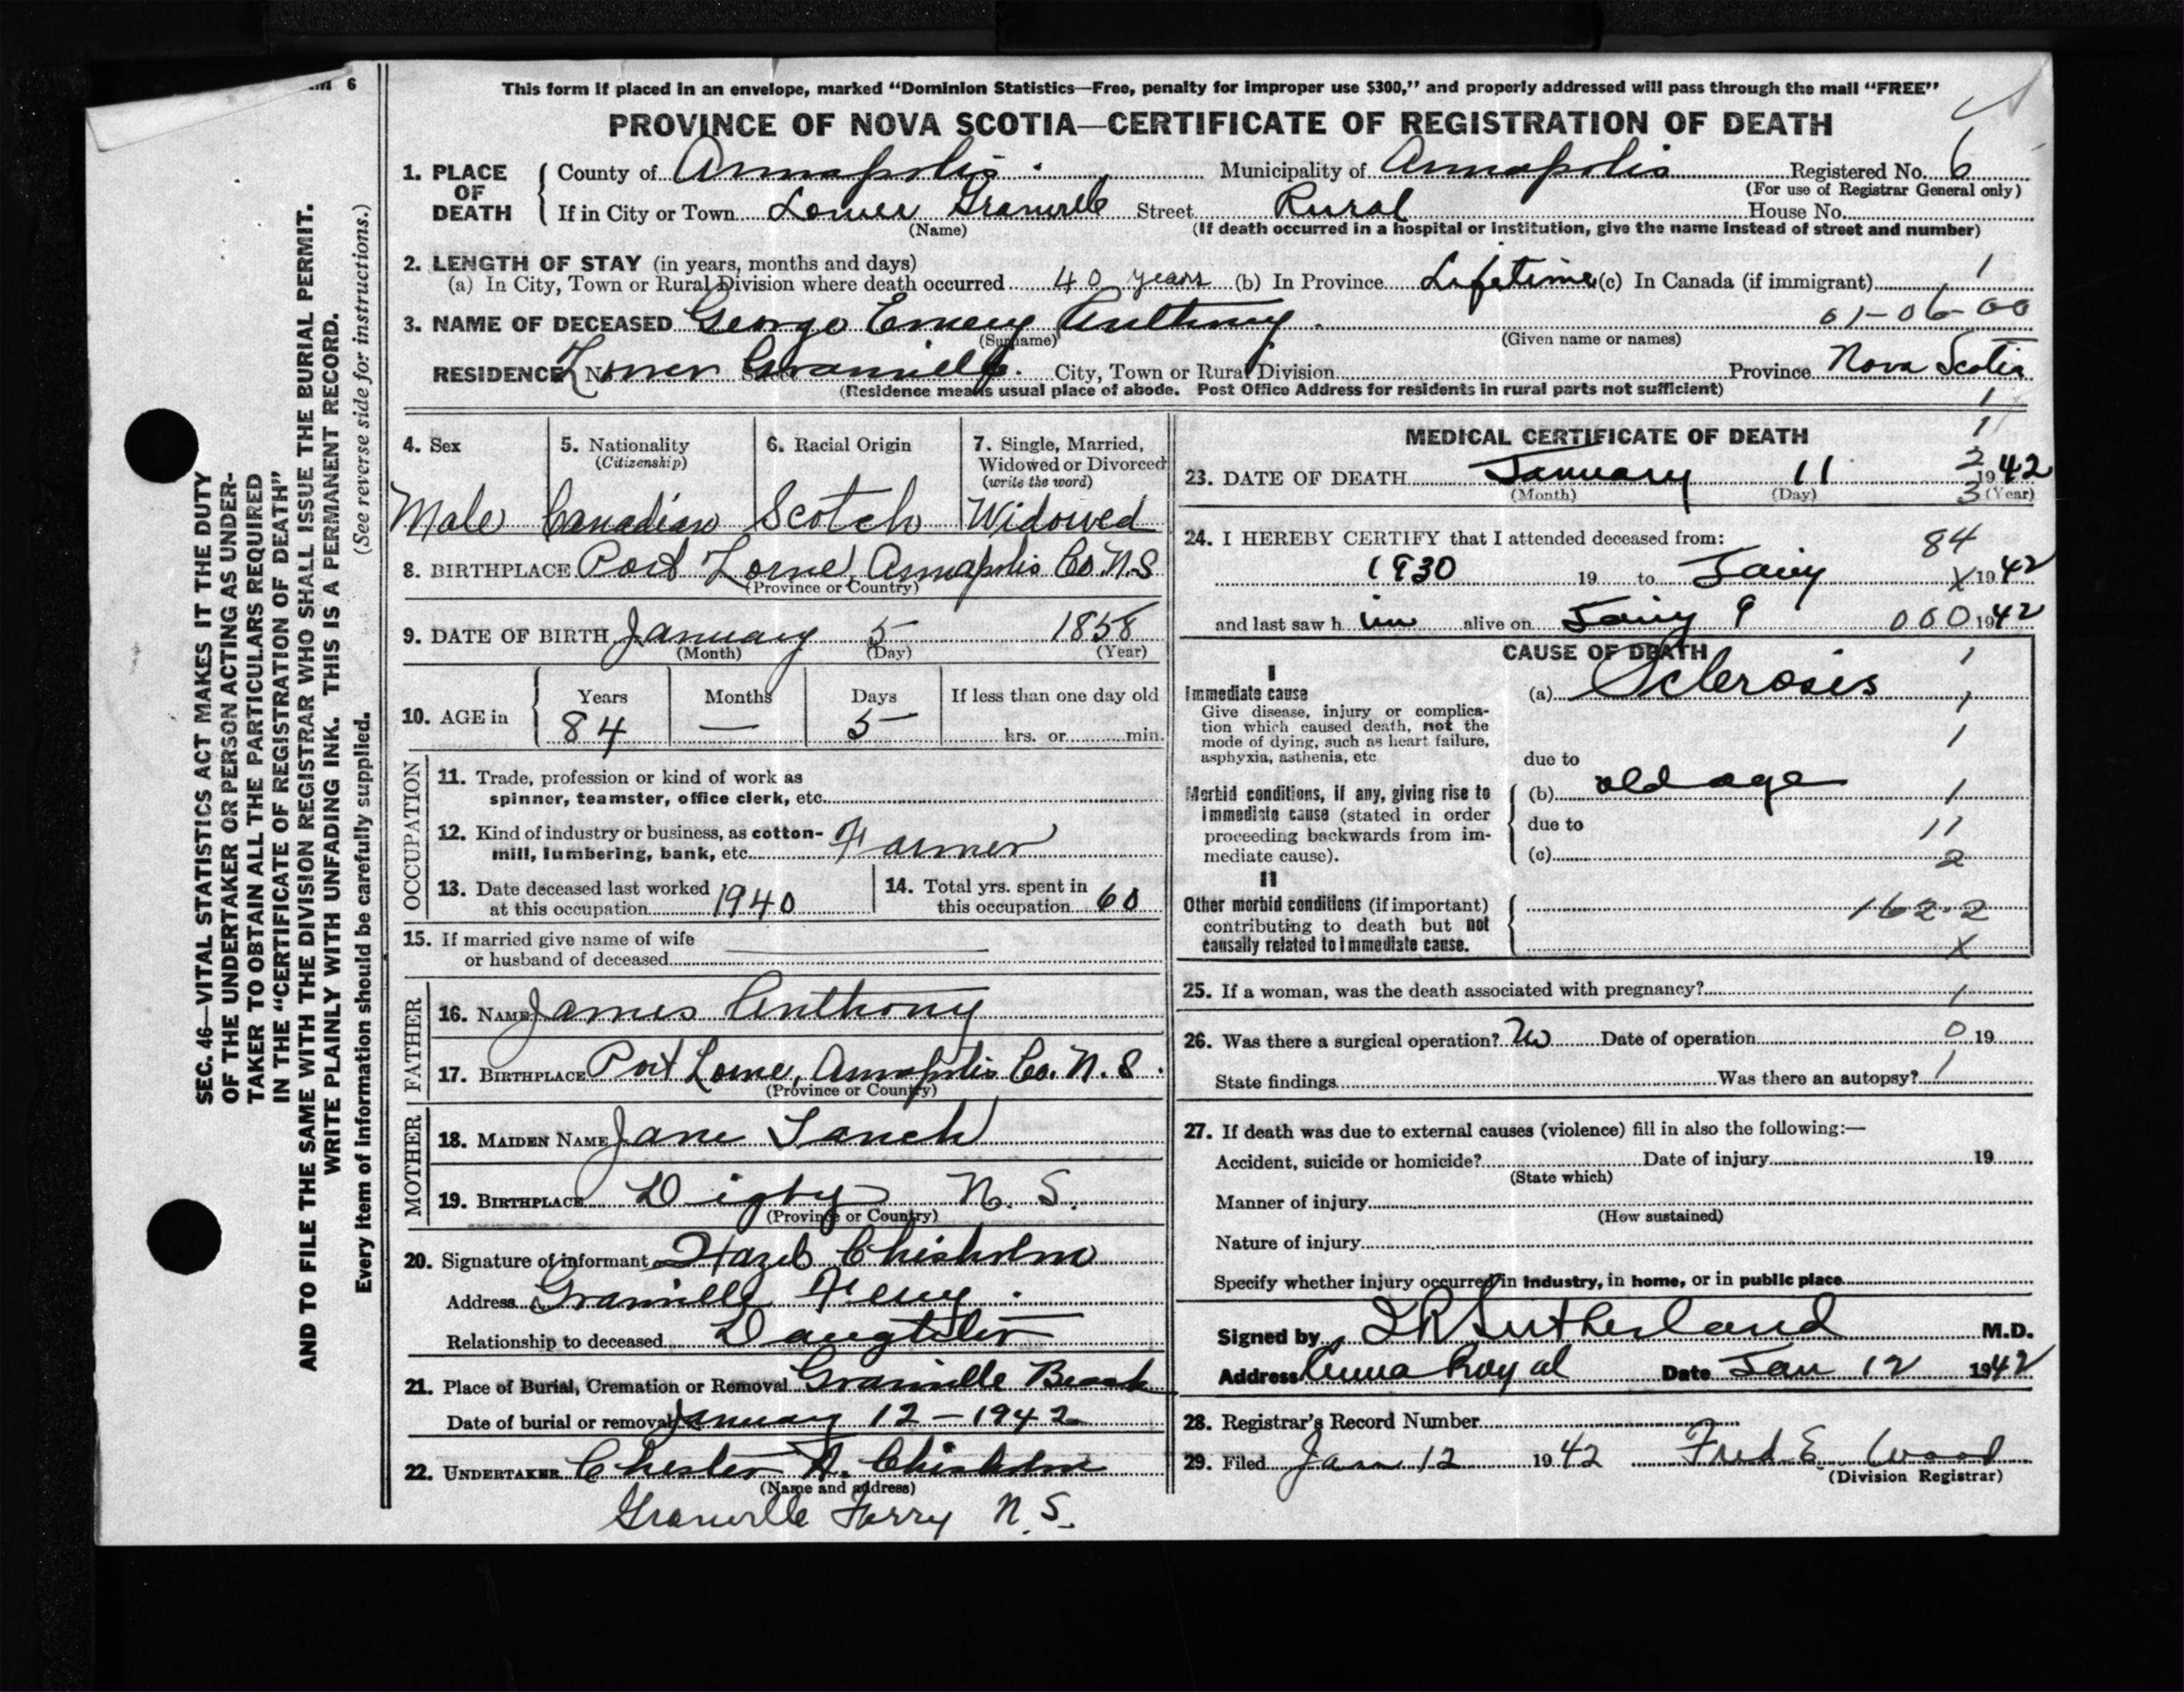 6
This form if placed in an envelope, marked "Dominion Statistics—Free, penalty for improper use $300," and properly addressed will pass through the mail "FREE"
PROVINCE OF NOVA SCOTIA—CERTIFICATE OF REGISTRATION OF DEATH
1. PLACE OF DEATH County of Annapolis Municipality of Annapolis Registered No. 6
(For use of Registrar General only)
If in City or Town Lower Granville Street Rural House No.
(Name) (If death occurred in a hospital or institution, give the name instead of street and number)
2. LENGTH OF STAY (in years, months and days) 1
(a) In City, Town or Rural Division where death occurred 40 years (b) In Province Lifetime (c) In Canada (if immigrant)
3. NAME OF DECEASED George Emery Anthony. 01-06-00
(Surname) (Given name or names)
RESIDENCE No. Lower Granville. Street City, Town or Rural Division Province Nova Scotia
(Residence means usual place of abode. Post Office Address for residents in rural parts not sufficient) 1
4. Sex 5. Nationality (Citizenship) 6. Racial Origin 7. Single, Married, Widowed or Divorced (write the word)
Male Canadian Scotch Widowed
8. BIRTHPLACE Port Lorne, Annapolis Co. N.S
(Province or Country)
9. DATE OF BIRTH January 5 1858
(Month) (Day) (Year)
10. AGE in Years Months Days If less than one day old
84 — 5 hrs. or min.
OCCUPATION
11. Trade, profession or kind of work as
spinner, teamster, office clerk, etc.
12. Kind of industry or business, as cotton-
mill, lumbering, bank, etc. Farmer
13. Date deceased last worked at this occupation 1940 14. Total yrs. spent in this occupation 60
15. If married give name of wife
or husband of deceased
FATHER
16. NAME James Anthony
17. BIRTHPLACE Port Lorne, Annapolis Co. N.S.
(Province or Country)
MOTHER
18. MAIDEN NAME Jane
19. BIRTHPLACE Digby N.S.
(Province or Country)
20. Signature of informant Hazel Chisholm
Address Granville Ferry.
Relationship to deceased Daughter
21. Place of Burial, Cremation or Removal Granville Beach
Date of burial or removal January 12-1942
22. UNDERTAKER Chester A. Chisholm
(Name and address)
Granville Ferry N.S.
MEDICAL CERTIFICATE OF DEATH 1
23. DATE OF DEATH January 11 2 1942
(Month) (Day) 3 (Year)
24. I HEREBY CERTIFY that I attended deceased from: 84
1930 19 to Jany X 1942
and last saw him alive on Jany 9 000 1942
CAUSE OF DEATH 1
I
Immediate cause (a) Sclerosis 1
Give disease, injury or complica-
tion which caused death, not the
mode of dying, such as heart failure, 1
asphyxia, asthenia, etc due to
Morbid conditions, if any, giving rise to (b) old age 1
immediate cause (stated in order
proceeding backwards from im- due to 11
mediate cause). (c) 2
II
Other morbid conditions (if important) 162.2
contributing to death but not
causally related to immediate cause. X
25. If a woman, was the death associated with pregnancy? 1
26. Was there a surgical operation? No Date of operation 0 19
State findings Was there an autopsy? 1
27. If death was due to external causes (violence) fill in also the following:—
Accident, suicide or homicide? Date of injury 19
(State which)
Manner of injury
(How sustained)
Nature of injury
Specify whether injury occurred in industry, in home, or in public place
Signed by Sutherland M.D.
Address Anna Royal Date Jan 12 1942
28. Registrar's Record Number
29. Filed Jan 12 1942 Fred E. Wood
(Division Registrar)
SEC. 46—VITAL STATISTICS ACT MAKES IT THE DUTY
OF THE UNDERTAKER OR PERSON ACTING AS UNDER-
TAKER TO OBTAIN ALL THE PARTICULARS REQUIRED
IN THE "CERTIFICATE OF REGISTRATION OF DEATH"
AND TO FILE THE SAME WITH THE DIVISION REGISTRAR WHO SHALL ISSUE THE BURIAL PERMIT.
WRITE PLAINLY WITH UNFADING INK. THIS IS A PERMANENT RECORD.
Every item of information should be carefully supplied. (See reverse side for instructions.)